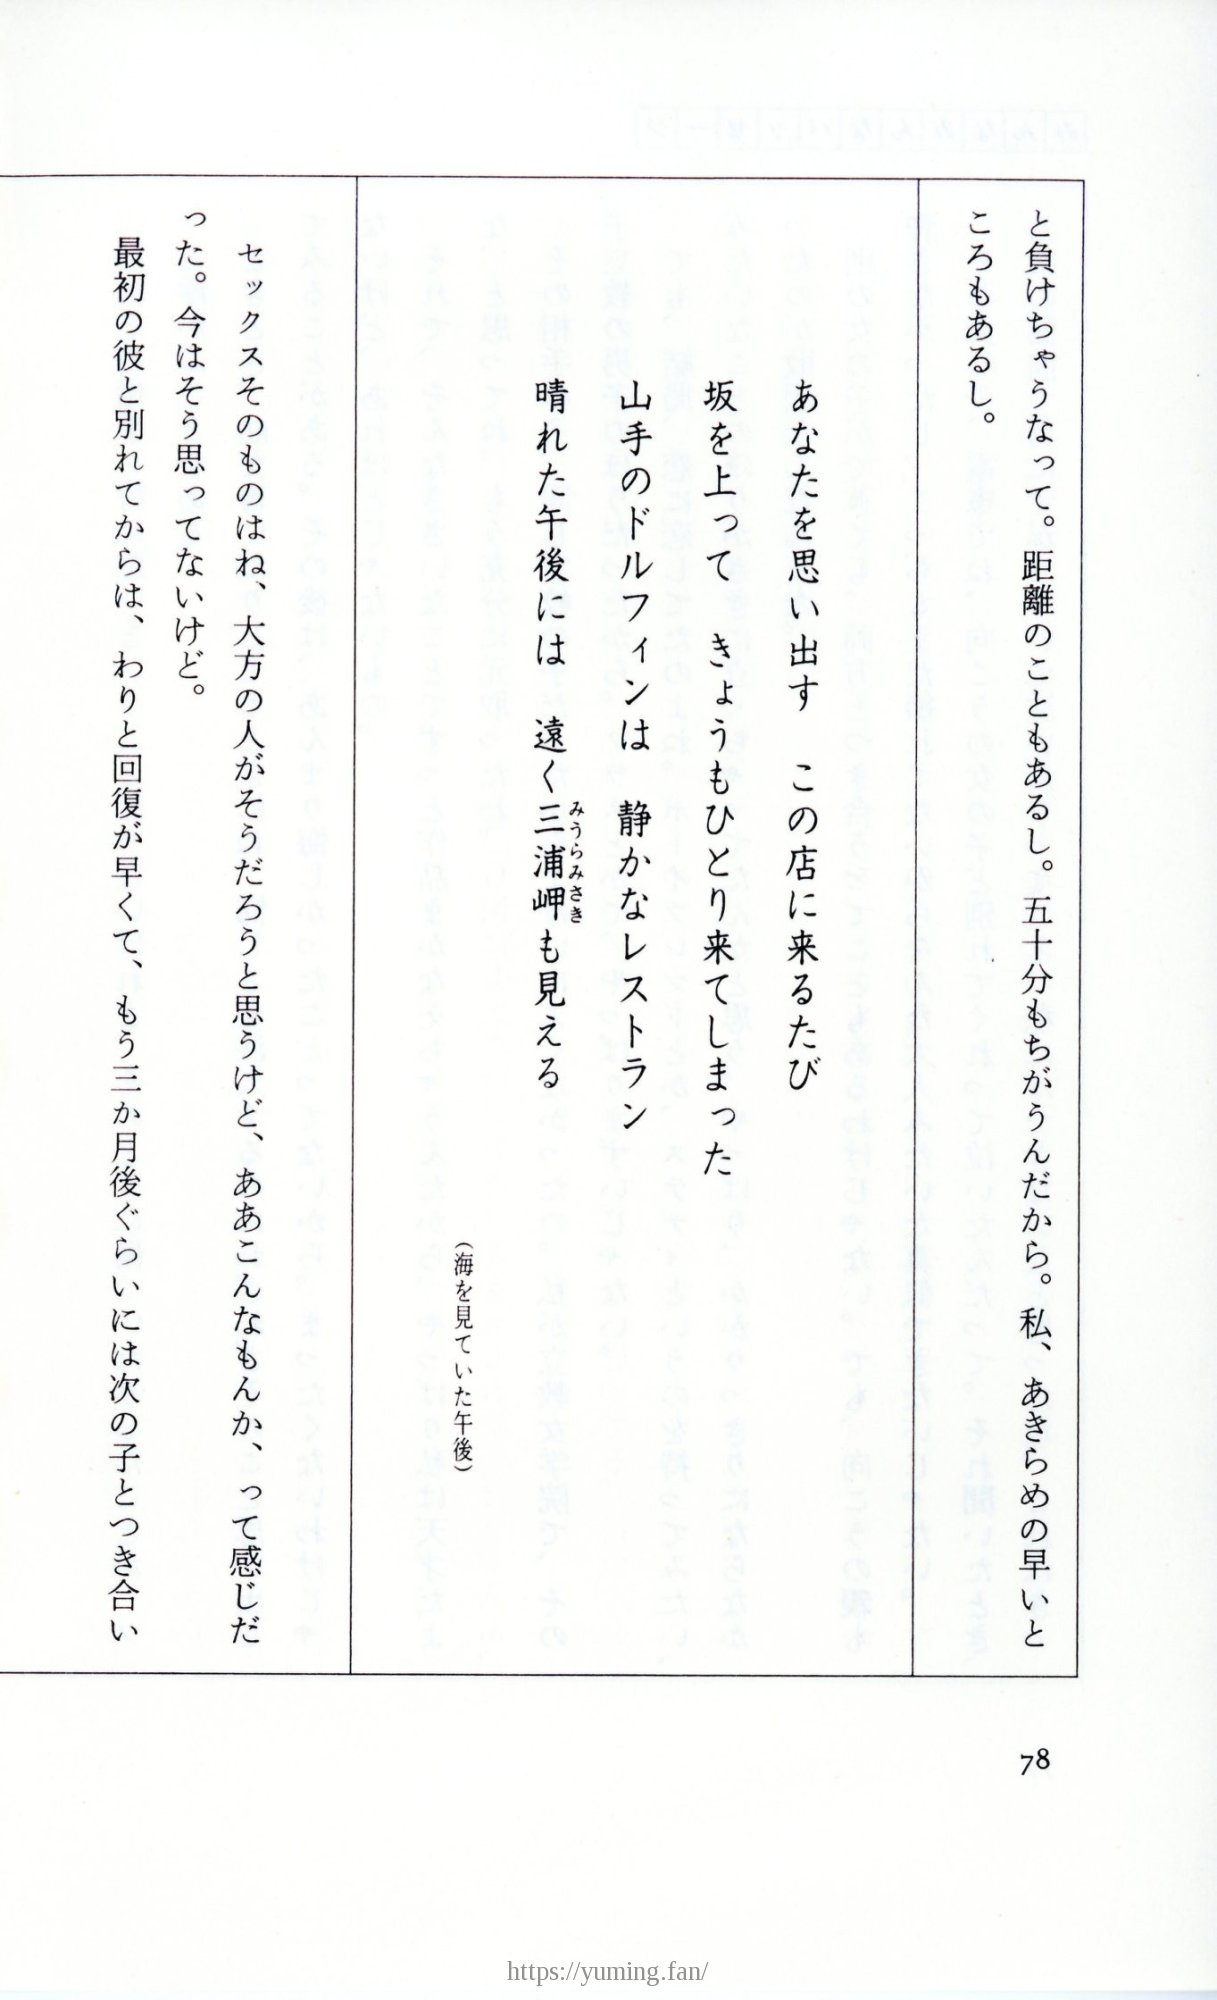 と負けちゃうなって。距離のこともあるし。五十分もちがうんだから。私、あきらめの早いと
ころもあるし。
あなたを思い出す　この店に来るたび
坂を上って　きょうもひとり来てしまった
山手のドルフィンは　静かなレストラン
晴れた午後には　遠く三浦岬も見える
みうらみさき
（海を見ていた午後）
セックスそのものはね、大方の人がそうだろうと思うけど、ああこんなもんか、って感じだ
った。今はそう思ってないけど。
最初の彼と別れてからは、わりと回復が早くて、もう三か月後ぐらいには次の子とつき合い
78
https://yuming.fan/